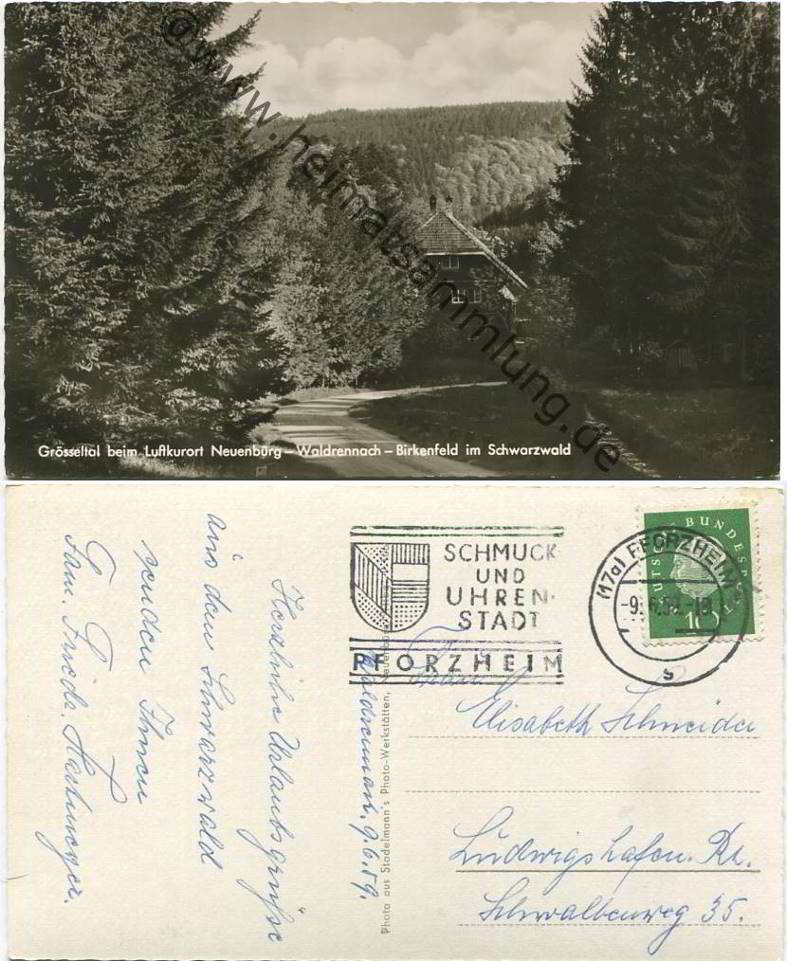 © www.heimatsammlung.de
Grösseltal beim Luftkurort Neuenbürg – Waldrennach – Birkenfeld im Schwarzwald
SCHMUCK-
UND
UHREN-
STADT
PFORZHEIM
(17a) PFORZHEIM
-9.6.59.-18
s
DEUTSCHE BUNDESPOST
10
Waldrennach, 9.6.59.
Herzliche Urlaubsgrüße
aus dem Schwarzwald
senden Ihnen
Fam. Friedr.
Photo aus Stadelmann's Photo-Werkstätten, Neuenbürg
Frau
Elisabeth Schneider
Ludwigshafen. Rh.
Schwalbenweg 35.